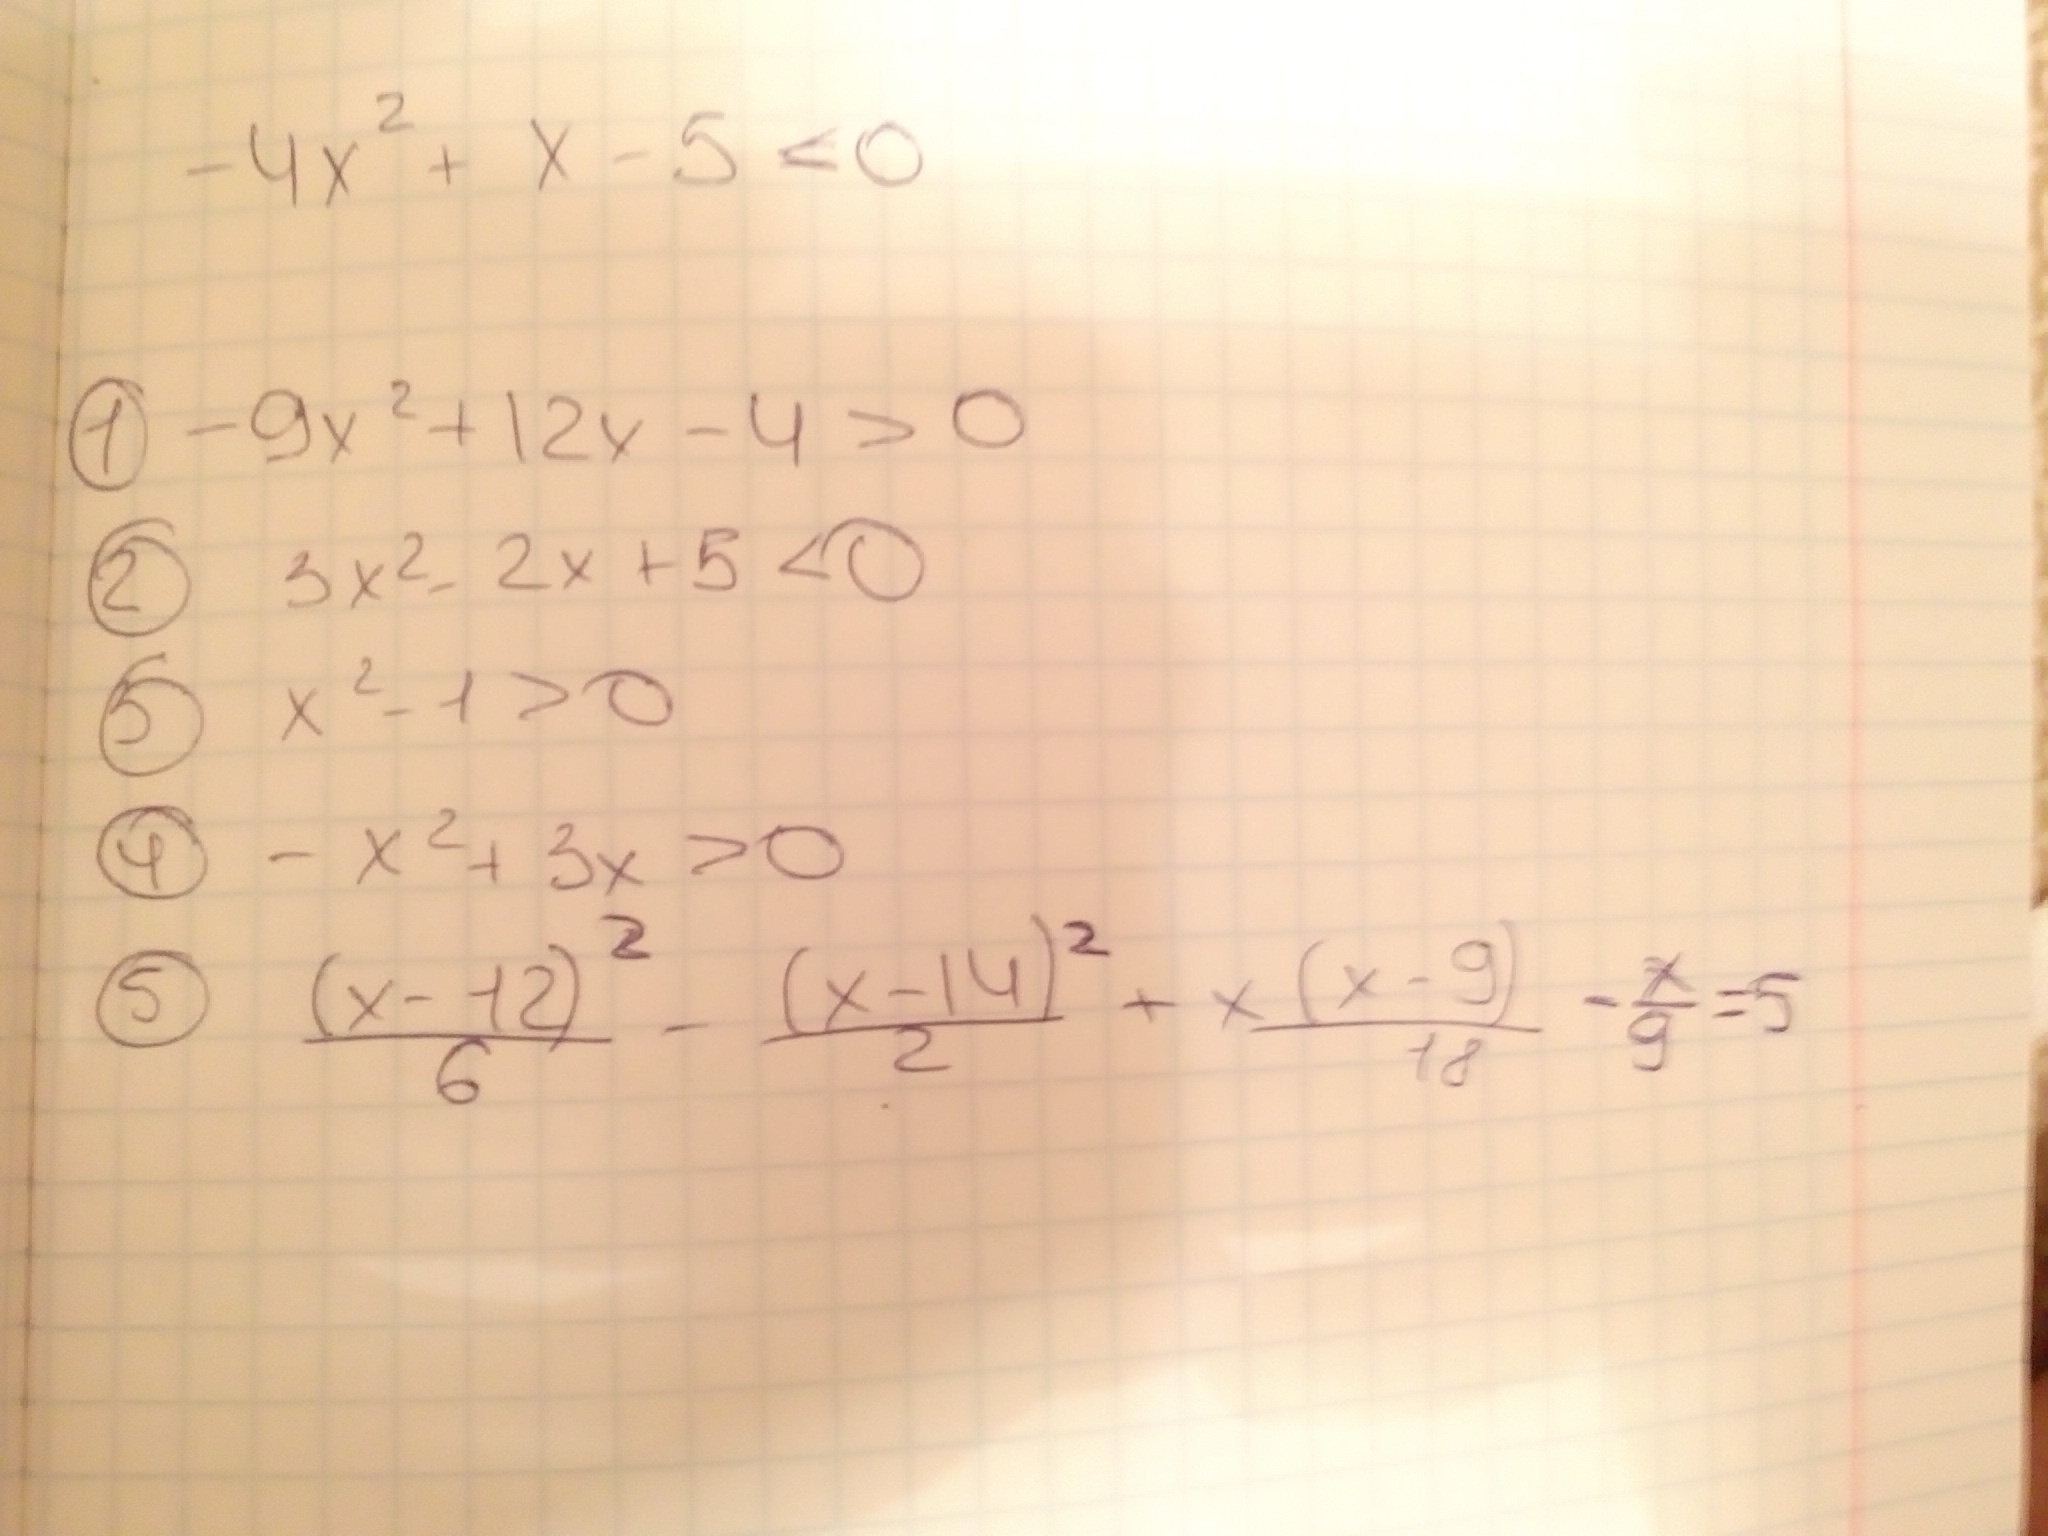 -4x² + x - 5 < 0
① -9x² + 12x - 4 > 0
② 3x² - 2x + 5 < 0
③ x² - 1 > 0
④ -x² + 3x > 0
⑤ (x-12)²/6 - (x-14)²/2 + x(x-9)/18 - x/9 = 5